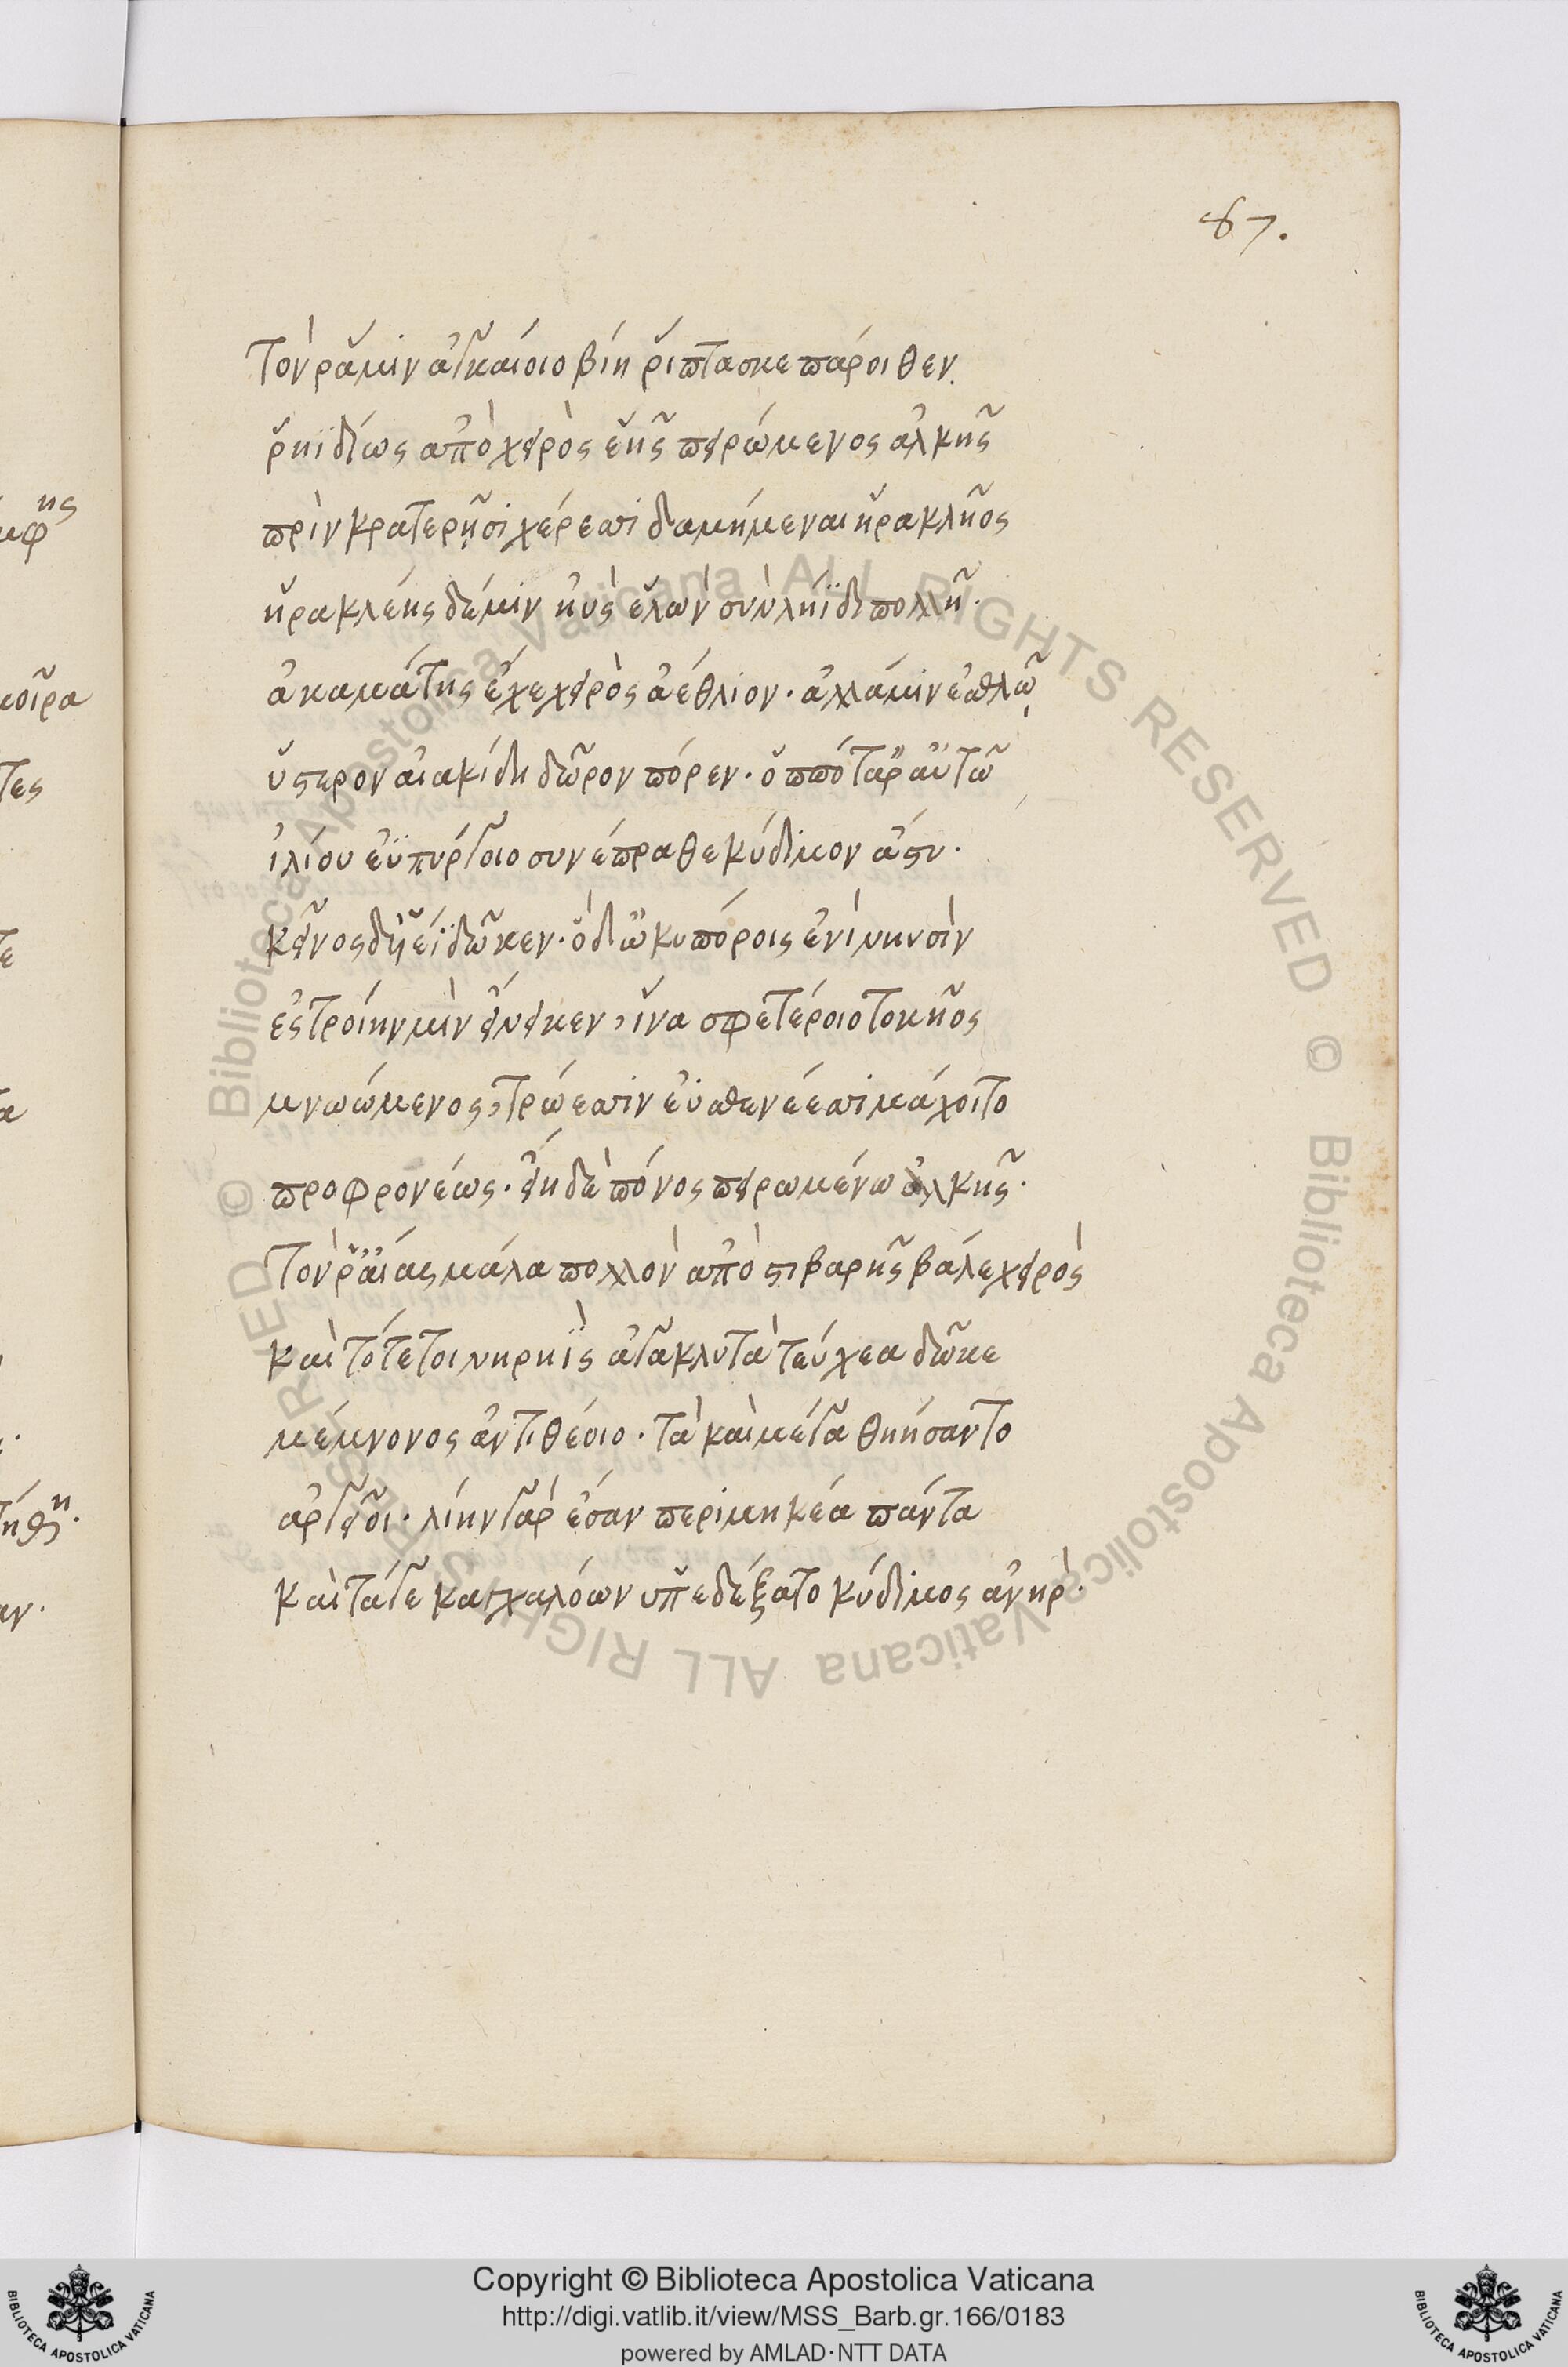 87.
τόν ῥά μιν ἀγκαίοιο βίη ῥίπτασκε πάροιθεν.
ῥηϊδίως ἀπὸ χειρὸς ἑῆς πειρώμενος ἀλκῆς
πρὶν κρατερῇσι χέρεσσι δαμήμεναι ἡρακλῆος
ἡρακλέης δέ μιν ἠΰς ἑλὼν σὺν ληΐδι πολλῇ.
ἀκαμάτης ἔχε χειρὸς ἀέθλιον. ἀλλά μιν ἐσθλῷ
ὕστερον αἰακίδη δῶρον πόρεν. ὁππότ' ἄρ' αὐτῷ
ἰλίου εὐπύργοιο συνέπραθε κύδιμον ἄστυ.
κεῖνος δ' ἧέϊ δῶκεν. ὁ δ' ὠκυπόροις ἐνὶ νηυσὶν
ἐς τροίην μὶν ἔνεικεν, ἵνα σφετέροιο τοκῆος
μνωώμενος, τρώεσσιν ἐϋσθενέεσσι μάχοιτο
προφρονέως. εἴη δὲ πόνος πειρωμένω ἀλκῆς.
Τόν ῥ' αἴας μάλα πολλὸν ἀπὸ στιβαρῆς βάλε χειρὸς
καὶ τότε τοι νηρηῒς ἀγακλυτὰ τεύχεα δῶκε
μέμνονος ἀντιθέοιο. τὰ καὶ μέγα θηήσαντο
ἀργεῖοι. λίην γὰρ ἔσαν περιμηκέα πάντα
καὶ τάγε καγχαλόων ὑπεδέξατο κύδιμος ἀνήρ.
Copyright © Biblioteca Apostolica Vaticana
http://digi.vatlib.it/view/MSS_Barb.gr.166/0183
powered by AMLAD·NTT DATA